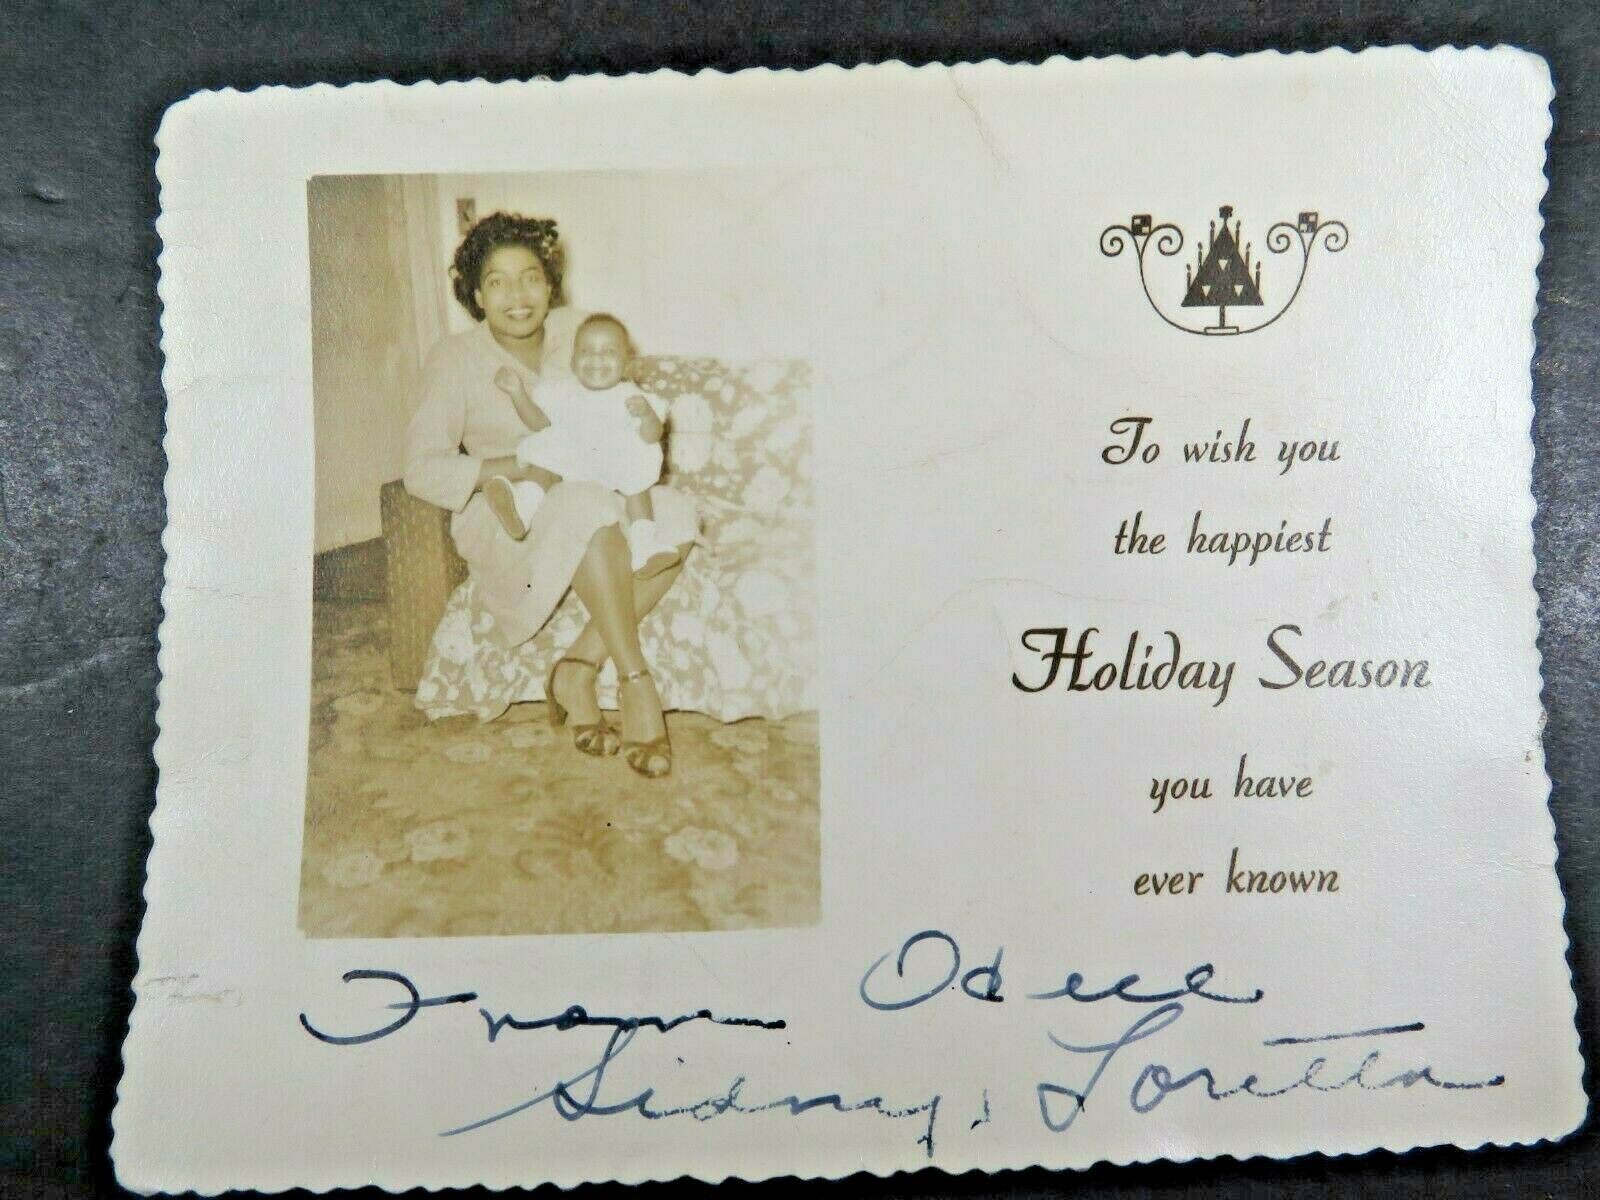 To wish you
the happiest
Holiday Season
you have
ever known
From
Sidney, Loretta